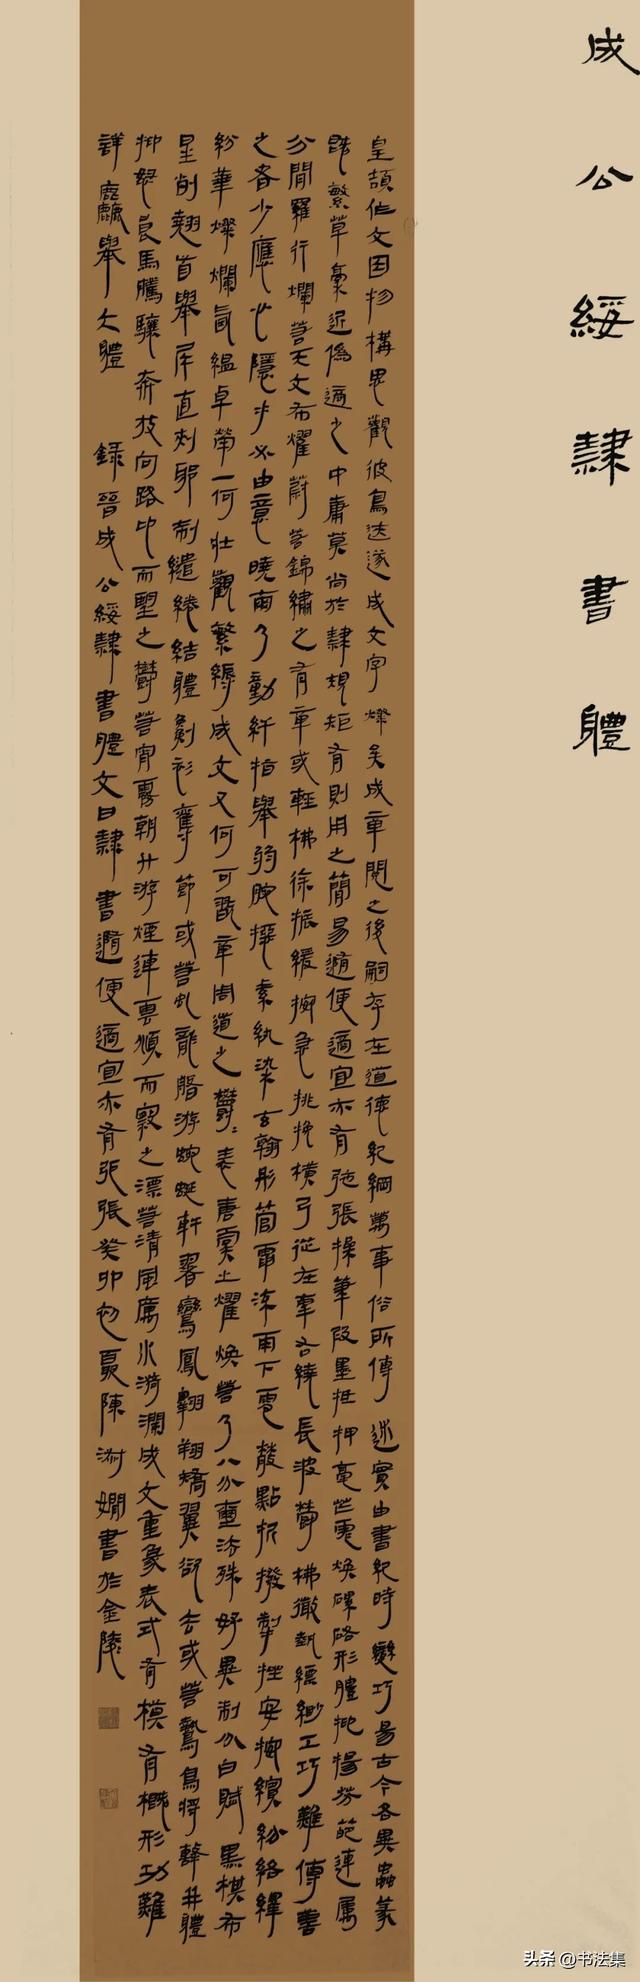 成公綏隸書體
皇頡作文因物構思觀彼鳥迹遂成文字燦矣成章閱之後嗣存在道德紀綱萬事俗所傳述實由書紀時變巧易古今各異蟲篆
既繁草藁近偽適之中庸莫尚於隸規矩有則用之簡易隨便適宜亦有弛張操筆假墨抵押毫芒彪煥磥硌形體抑揚芬葩連屬
分間羅行爛若天文布燿蔚若錦繡之有章或輕拂徐振緩按急挑挽橫引從左牽右繞長波鬱拂微勢縹緲工巧難傳善
之者少應心隱手必由意曉爾乃動纖指舉弱腕握素紈染玄翰彤管電流雨下雹散點折撥掣挫安按繽紛絡繹
紛華燦爛氤氳卓犖一何壯觀繁縟成文又何可翫章周道之鬱鬱表唐虞之耀煥若乃八分璽法殊好異制分白賦黑棋布
星列翹首舉尾直刺邪制繾綣結體劖衫奪節或若虬龍盤游蜿蜒軒翥鸞鳳翱翔矯翼欲去或若鷙鳥將擊并體
抑怒良馬騰驤奔放向路仰而望之鬱若宵霧朝升游煙連雲俯而察之漂若清風厲水漪瀾成文垂象表式有模有概形功難
詳麤舉大體 錄晉成公綏隸書體文曰隸書隨便適宜亦有弛張癸卯初夏陳 書於金陵
头条 @书法集